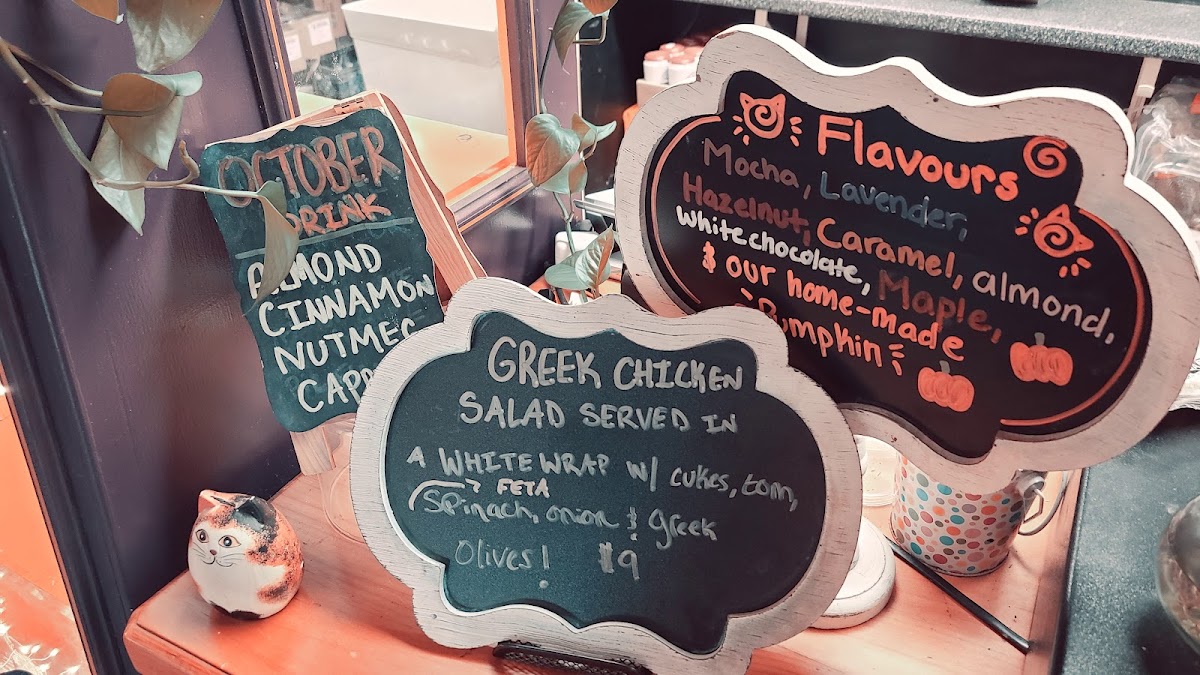 OCTOBER
DRINK
ALMOND
CINNAMON
NUTMEG
Flavours
Mocha, Lavender,
Hazelnut, Caramel, almond,
White chocolate, Maple,
& our home-made
Pumpkin
GREEK CHICKEN
SALAD SERVED IN
A WHITE WRAP w/ cukes, tom,
FETA
Spinach, onion & greek
Olives! $9